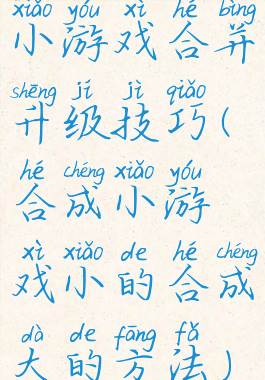 xiǎo yóu xì hé bìng
小游戏合并
shēng jí jì qiǎo
升级技巧(
hé chéng xiǎo yóu
合成小游
xì xiǎo de hé chéng
戏小的合成
dà de fāng fǎ
大的方法)